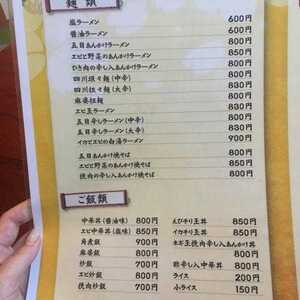 麺類
塩ラーメン 600円
醤油ラーメン 600円
五目あんかけラーメン 850円
エビと野菜のあんかけラーメン 850円
ひき肉の辛し入あんかけラーメン 800円
四川坦々麺(中辛) 830円
四川坦々麺(大辛) 830円
麻婆拉麺 800円
エビ玉ラーメン 800円
五目辛しラーメン(中辛) 830円
五目辛しラーメン(大辛) 830円
イカとエビの白湯ラーメン 900円
五目あんかけ焼そば 800円
エビと野菜あんかけ焼そば 850円
挽肉の辛し入あんかけ焼そば 800円
ご飯類
中華丼(醤油味) 800円
エビ中華丼(塩味) 850円
角煮飯 700円
麻婆飯 800円
炒飯 700円
エビ炒飯 800円
挽肉炒飯 700円
えびチリ玉丼 850円
イカチリ玉丼 850円
ネギ玉挽肉辛し入あんかけ丼 800円
辛し入中華丼 800円
ライス 200円
小ライス 150円